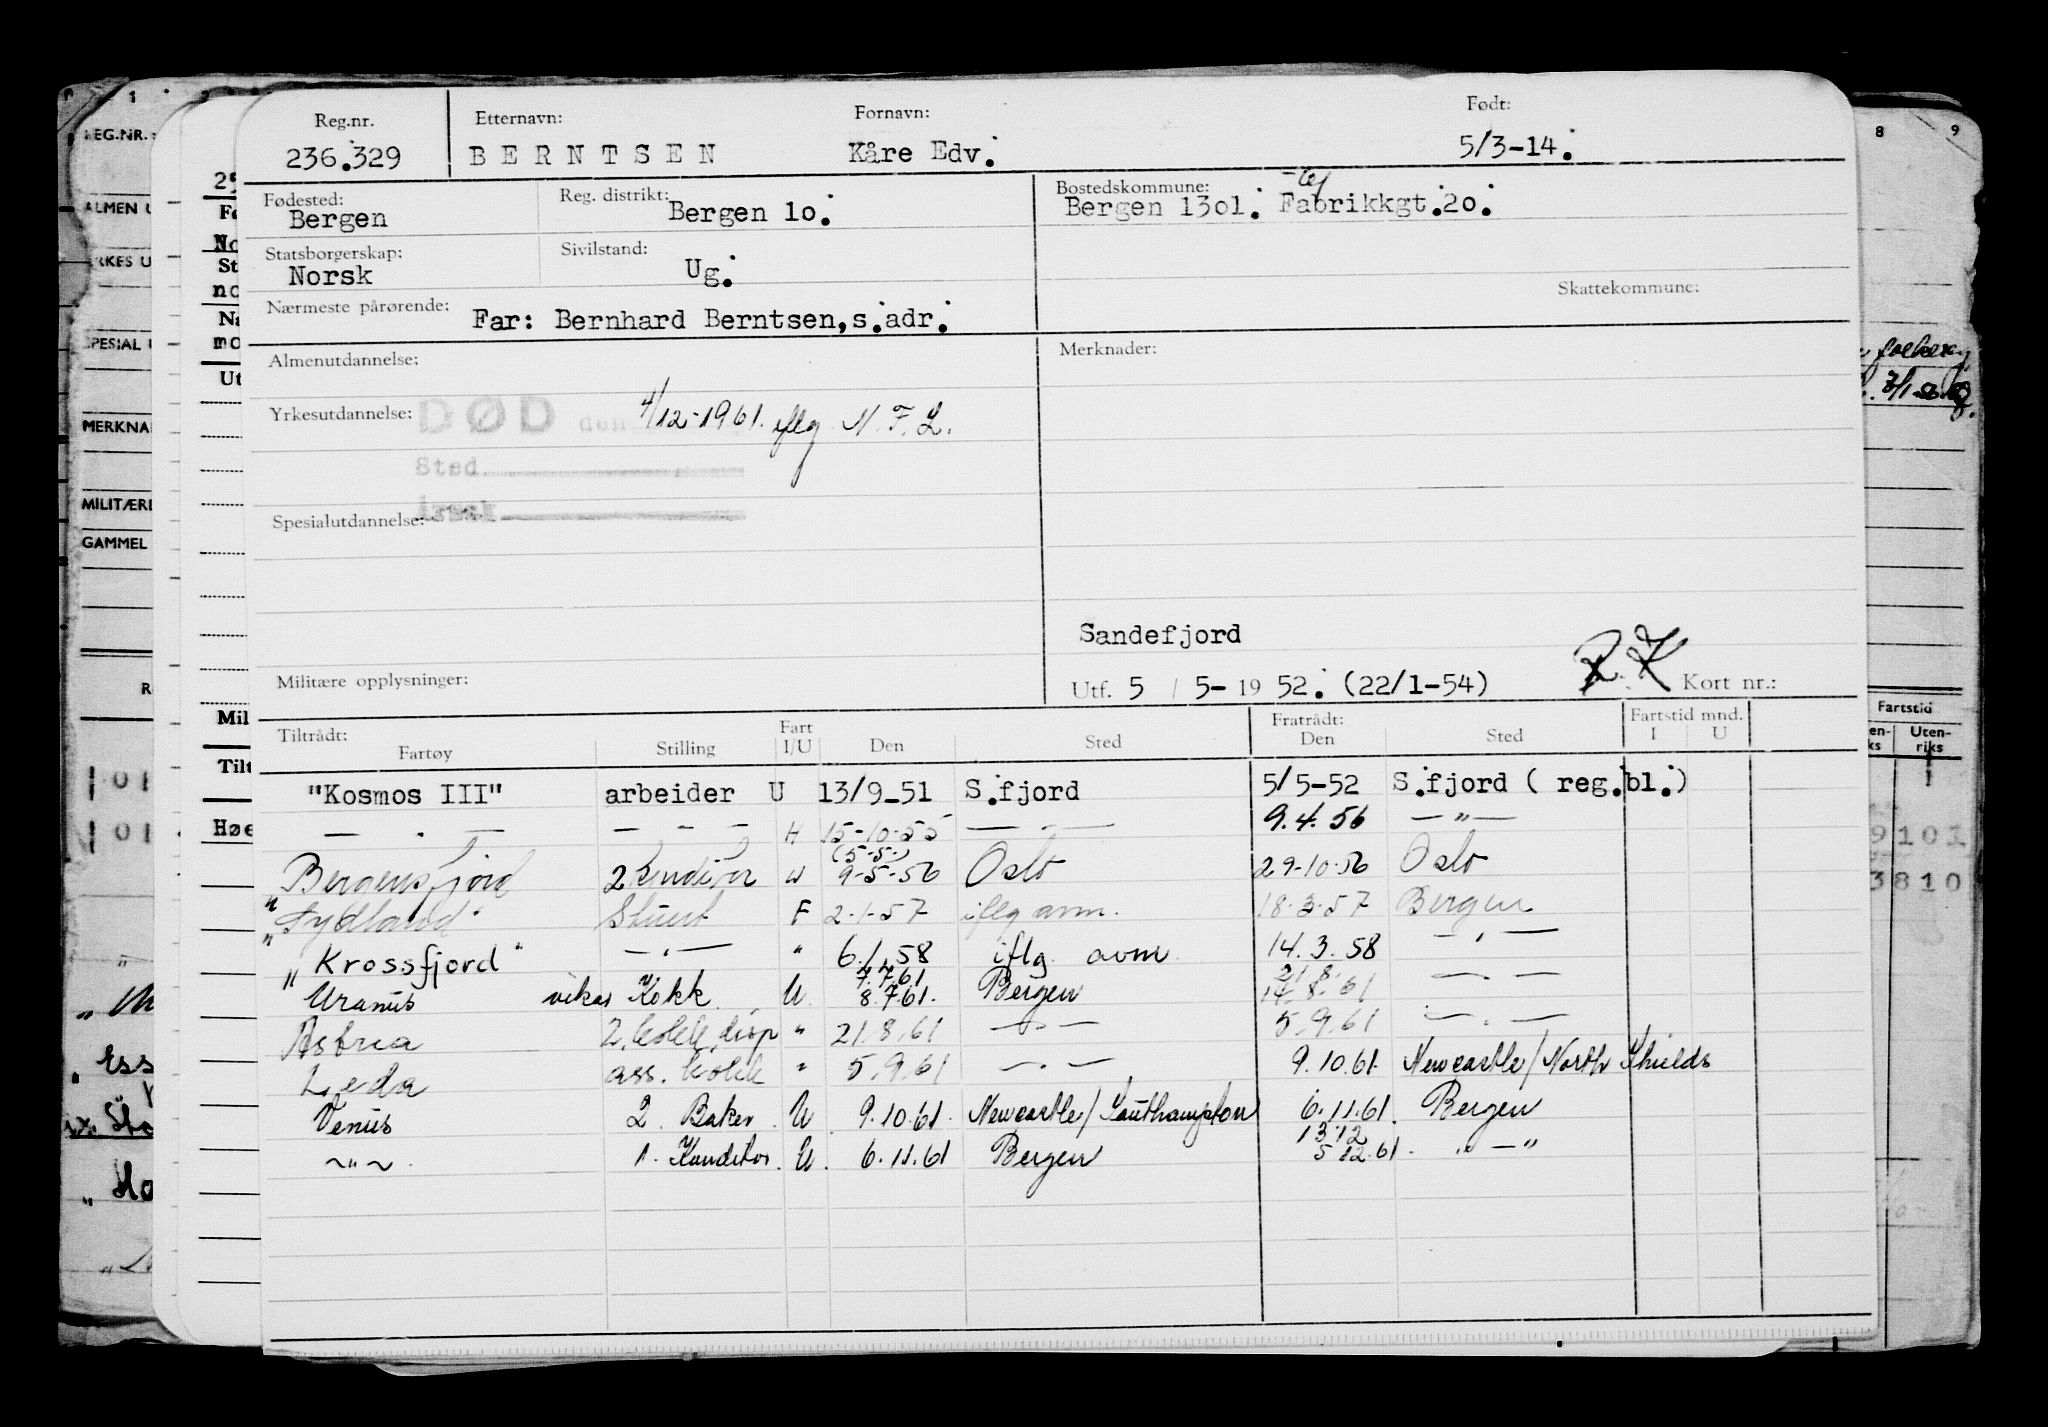 Reg.nr. Etternavn: Fornavn: Født:
236.329 BERNTSEN Kåre Edv. 5/3-14.
Fødested: Reg. distrikt: Bostedskommune:
Bergen Bergen 1o. Bergen 13o1. Fabrikkgt.2o.
Statsborgerskap: Sivilstand:
Norsk Ug.
Skattekommune:
Nærmeste pårørende: Far: Bernhard Berntsen,s.adr.
Almenutdannelse: Merknader:
Yrkesutdannelse: DØD den 4/12-1961. iflg N.F.L.
Sted
Spesialutdannelse: Årsak
Sandefjord
Militære opplysninger: Utf. 5 / 5- 19 52. (22/1-54) R.K Kort nr.:
Tiltrådt: Fart Fratrådt: Fartstid mnd.
Fartøy Stilling I/U Den Sted Den Sted I U
"Kosmos III" arbeider U 13/9-51 S.fjord 5/5-52 S.fjord ( reg.bl.)
— . — — — — H 15-10-55 — . — 9.4.56 — " —
(5-5-)
Bergensfjord 2 konditor U 9-5-56 Oslo 29-10-56 Oslo
"Sydland" Stuert F 2-1-57 iflg avm. 18.3.57 Bergen
"Krossfjord" — . — " 6.1.58 iflg avm 14.3.58 — . —
7.7.61 21.8.
Uranus vikar Kokk U. 8.7.61. Bergen 14.8.61 — . —
Astrea 2. kokk disp " 21.8.61 — . — 5.9.61 — . —
Leda ass. kokk " 5.9.61 — . — 9.10.61. Newcastle/North Shields
Venus 2. Baker. U. 9.10.61. Newcastle/Southampton 6.11.61. Bergen
13.12
~ " ~. 1. Konditor. U. 6.11.61 Bergen 5.12.61. " — "
REG.NR.:
MERKNA
MILITÆRE
GAMMEL
Mil
Tilt
Høe
8 9
Fartstid
Uten-
riks
9101
3810